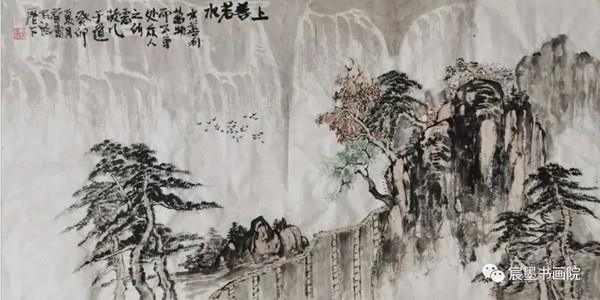 上善若水
水善利
万物
而不争
处众人
之所
恶
故几
于道
癸卯
夏月
宸墨书画院